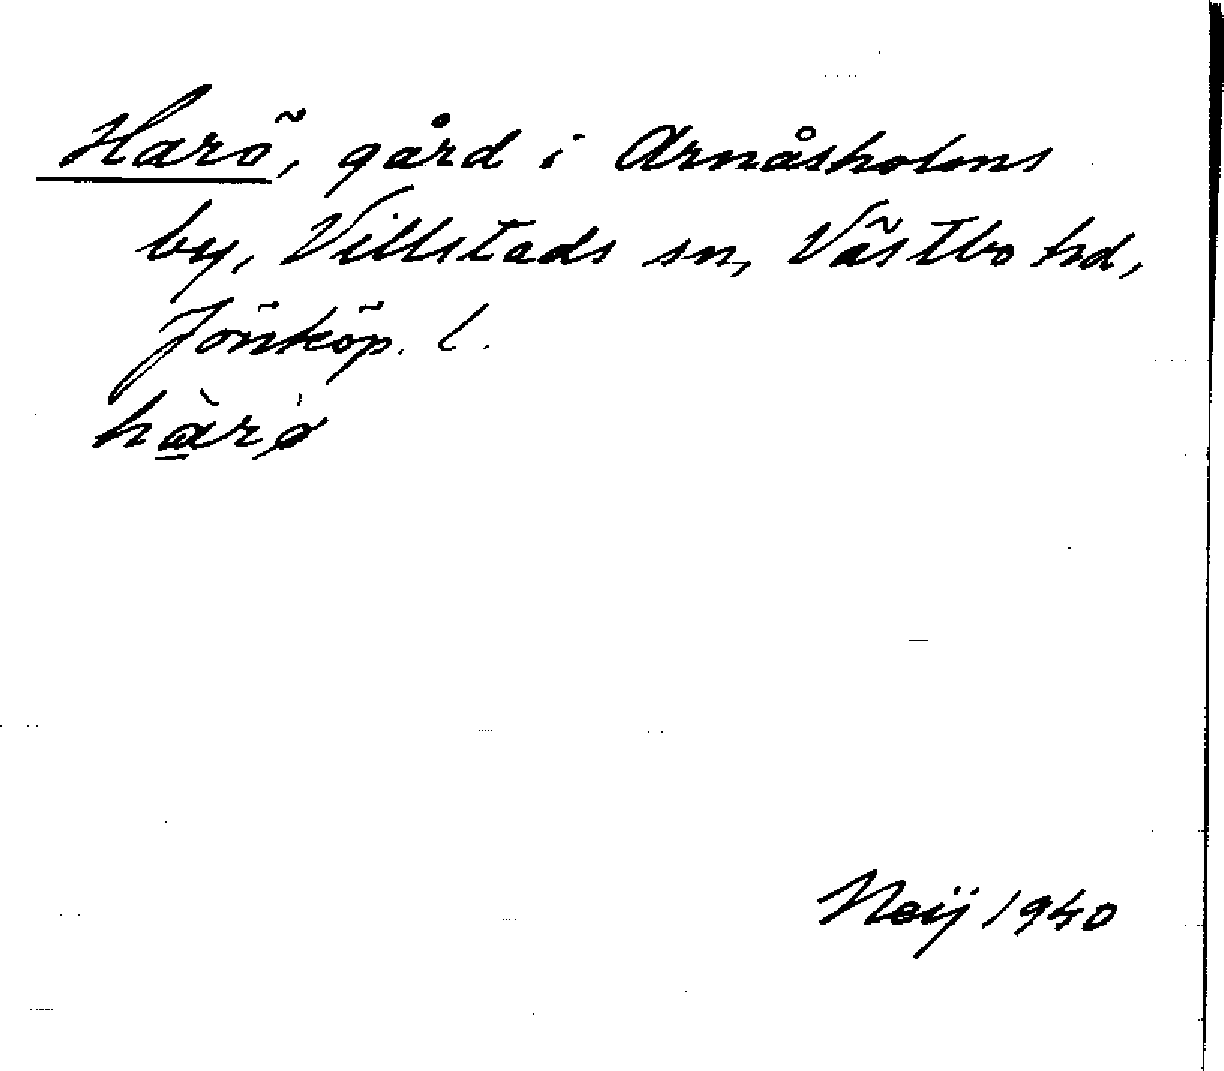 Harö, gård i Arnåsholms
by, Villstads sn, Västbo hd,
Jönköp. l.
hàrø
Neij 1940